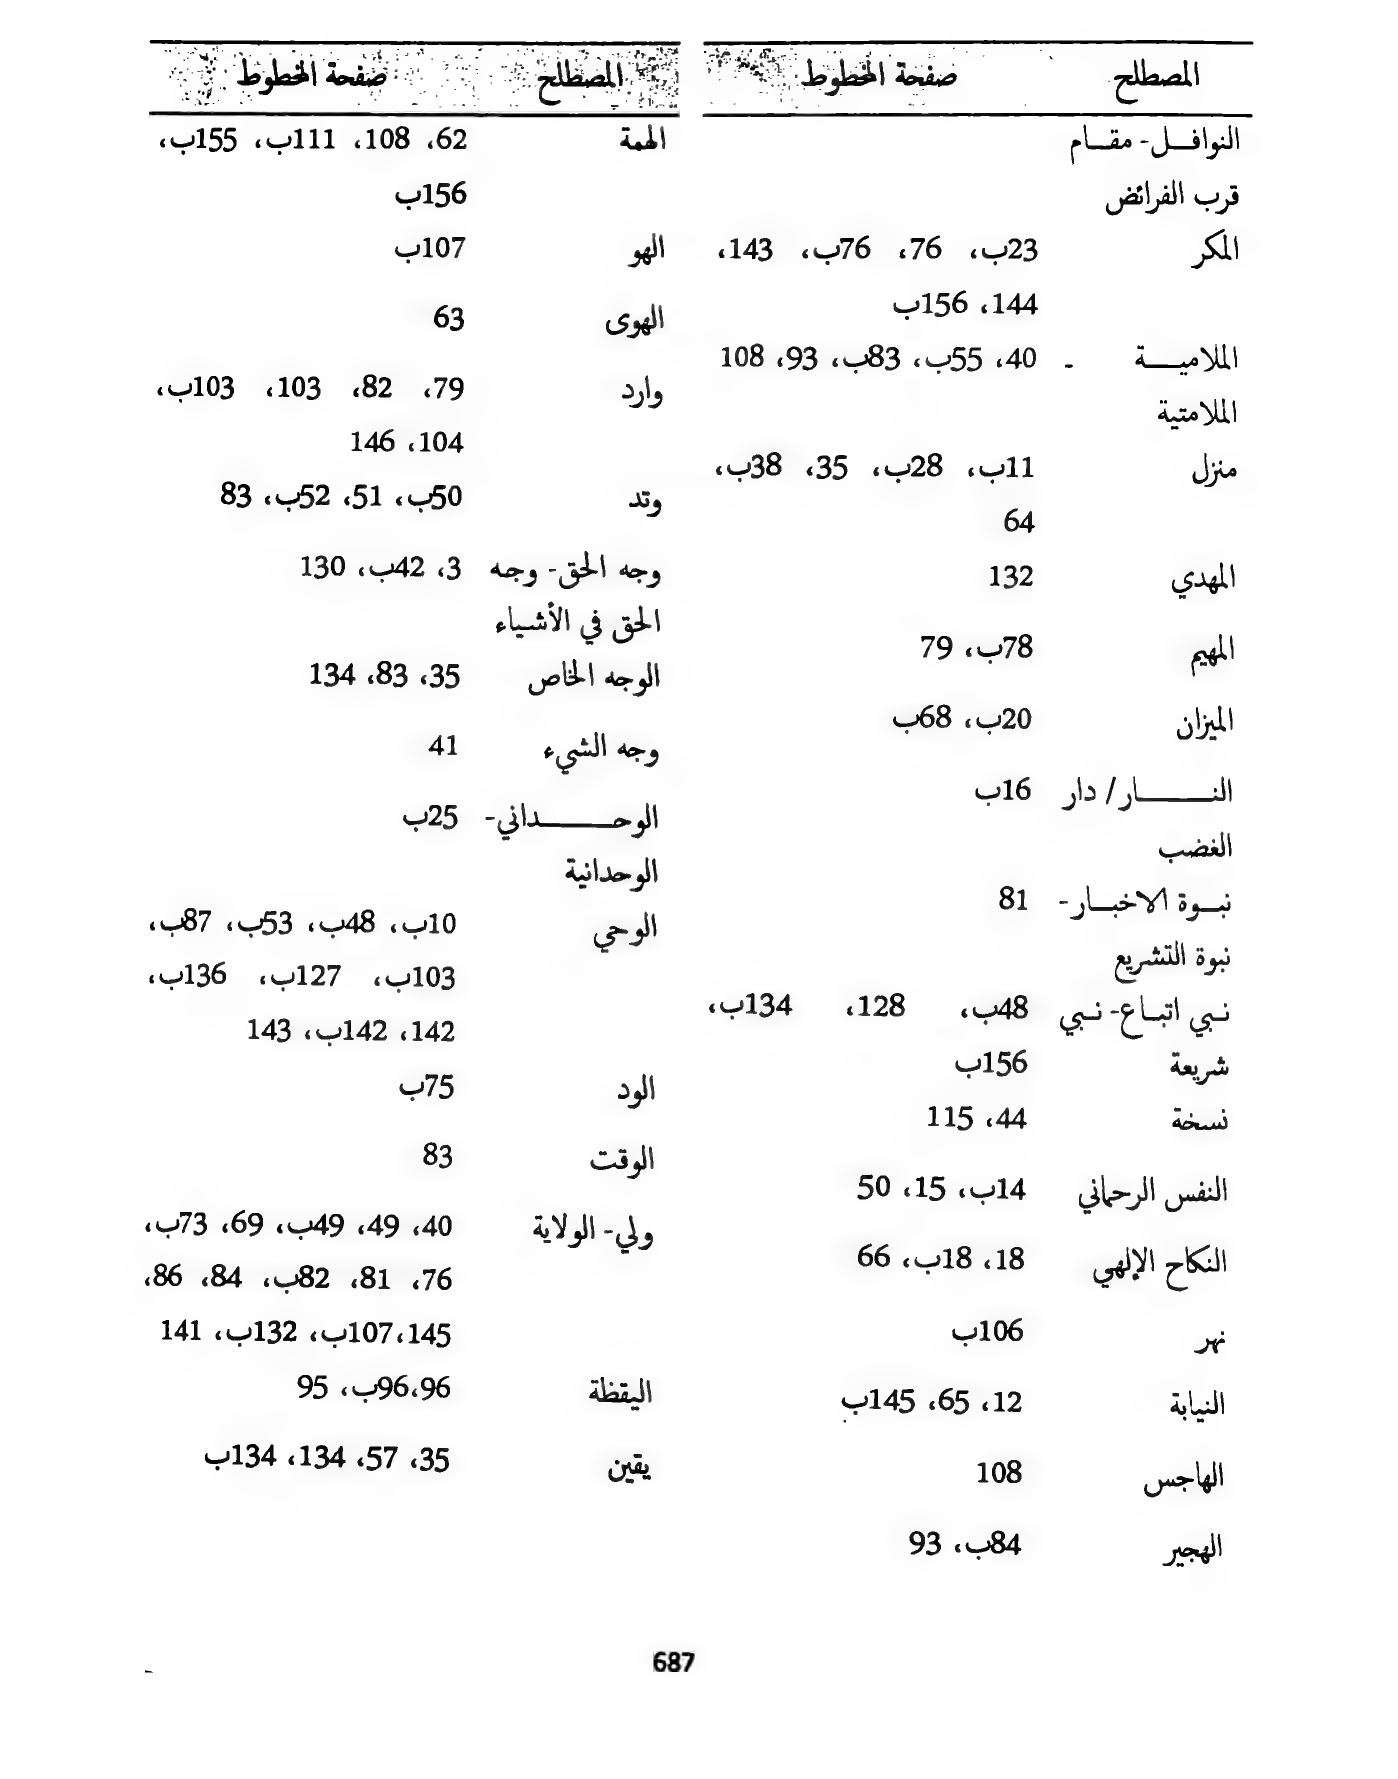 المصطلح صفحة المخطوط
النوافل- مقام
قرب الفرائض
المكر 23ب، 76، 76ب، 143،
144، 156ب
الملامية - 40، 55ب، 83ب، 93، 108
الملامتية
منزل 11ب، 28ب، 35، 38ب،
64
المهدي 132
المهيم 78ب، 79
الميزان 20ب، 68ب
النار/ دار 16ب
الغضب
نبوة الاخبار- 81
نبوة التشريع
نبي اتباع- نبي 48ب، 128، 134ب،
شريعة 156ب
نسخة 44، 115
النفس الرحماني 14ب، 15، 50
النكاح الإلهي 18، 18ب، 66
نهر 106ب
النيابة 12، 65، 145ب
الهاجس 108
الهجير 84ب، 93
المصطلح صفحة المخطوط
الهمة 62، 108، 111ب، 155ب،
156ب
الهو 107ب
الهوى 63
وارد 79، 82، 103، 103ب،
104، 146
وتد 50ب، 51، 52ب، 83
وجه الحق- وجه 3، 42ب، 130
الحق في الأشياء
الوجه الخاص 35، 83، 134
وجه الشيء 41
الوحداني- 25ب
الوحدانية
الوحي 10ب، 48ب، 53ب، 87ب،
103ب، 127ب، 136ب،
142، 142ب، 143
الود 75ب
الوقت 83
ولي- الولاية 40، 49، 49ب، 69، 73ب،
76، 81، 82ب، 84، 86،
145،107ب، 132ب، 141
اليقظة 96،96ب، 95
يقين 35، 57، 134، 134ب
687